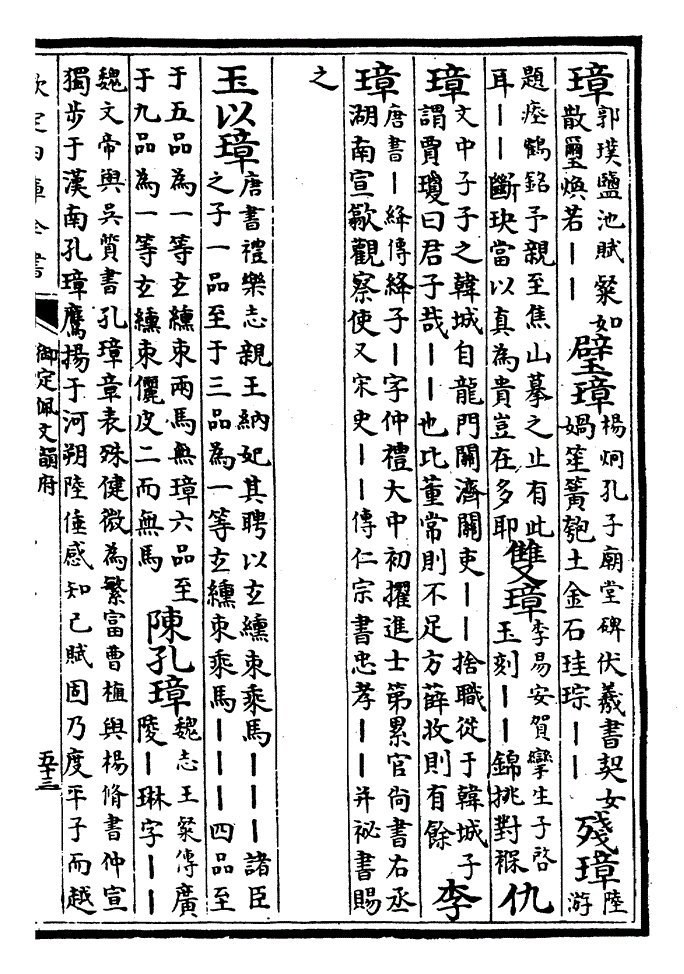 璋郭璞鹽池賦粲如
散璽煥若丨丨
璧璋楊炯孔子廟堂碑伏羲書契女
媧笙簧匏土金石珪琮丨丨
殘璋陸
游
題瘞鶴銘予親至焦山摹之止有此
耳丨丨斷玦當以真為貴豈在多耶
雙璋李易安賀孿生子啓
玉刻丨丨錦挑對褓
仇
璋文中子子之韓城自龍門關濟關吏丨丨捨職從于韓城子
謂賈瓊曰君子哉丨丨也比董常則不足方薛收則有餘
李
璋唐書丨絳傳絳子丨字仲禮大中初擢進士第累官尚書右丞
湖南宣歙觀察使又宋史丨丨傳仁宗書忠孝丨丨并祕書賜
之
玉以璋唐書禮樂志親王納妃其聘以玄纁束乘馬丨丨丨諸臣
之子一品至于三品為一等玄纁束乘馬丨丨丨四品至
于五品為一等玄纁束兩馬無璋六品至
于九品為一等玄纁束儷皮二而無馬
陳孔璋魏志王粲傳廣
陵丨琳字丨丨
魏文帝與吳質書孔璋章表殊健微為繁富曹植與楊脩書仲宣
獨步于漢南孔璋鷹揚于河朔陸倕感知己賦固乃度平子而越
欽定四庫全書
御定佩文韻府
五十三